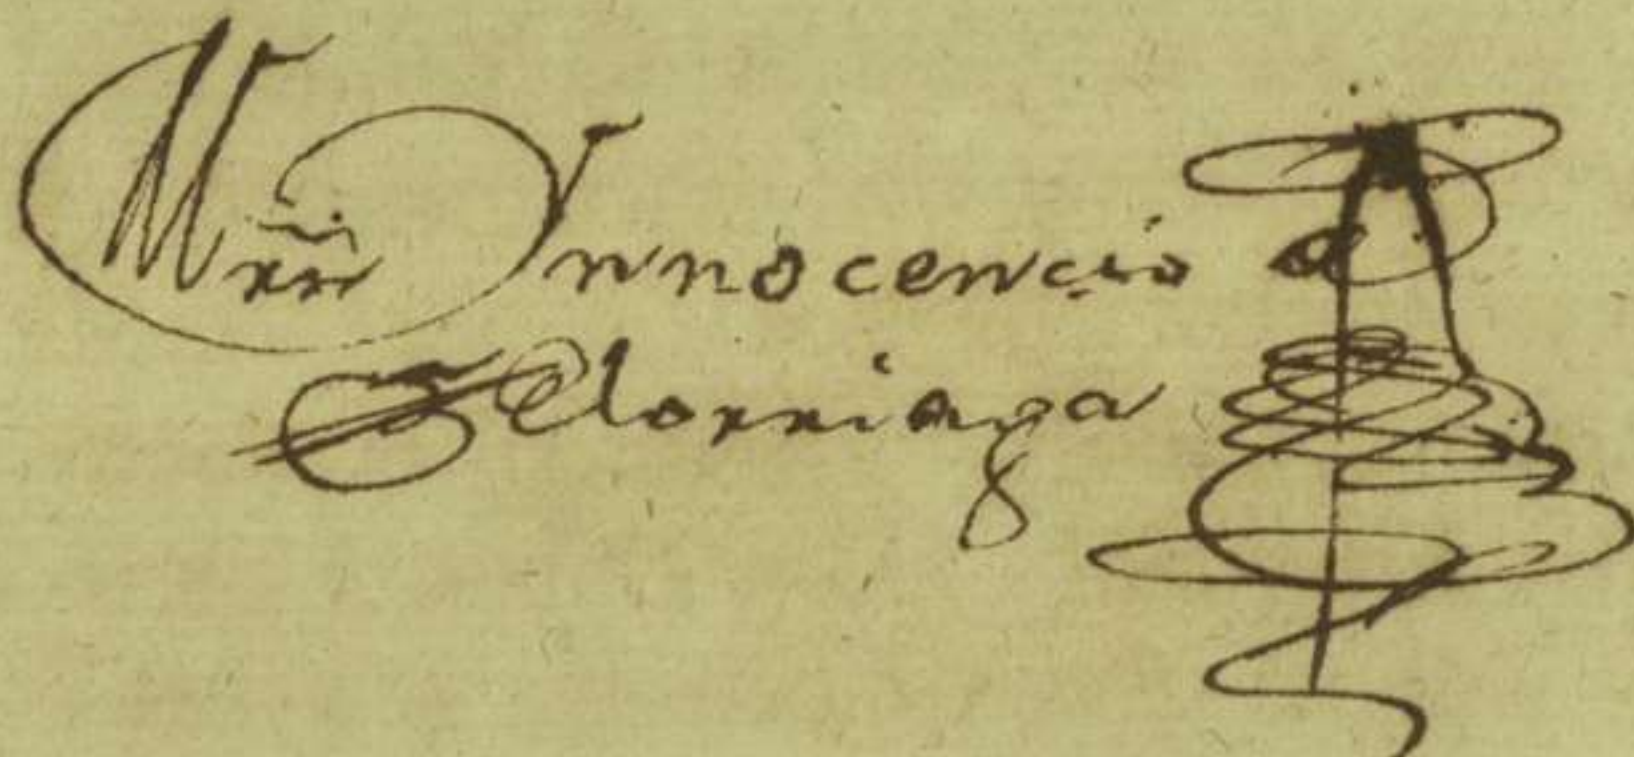 Mrñ Innocencio a
Elorriaga